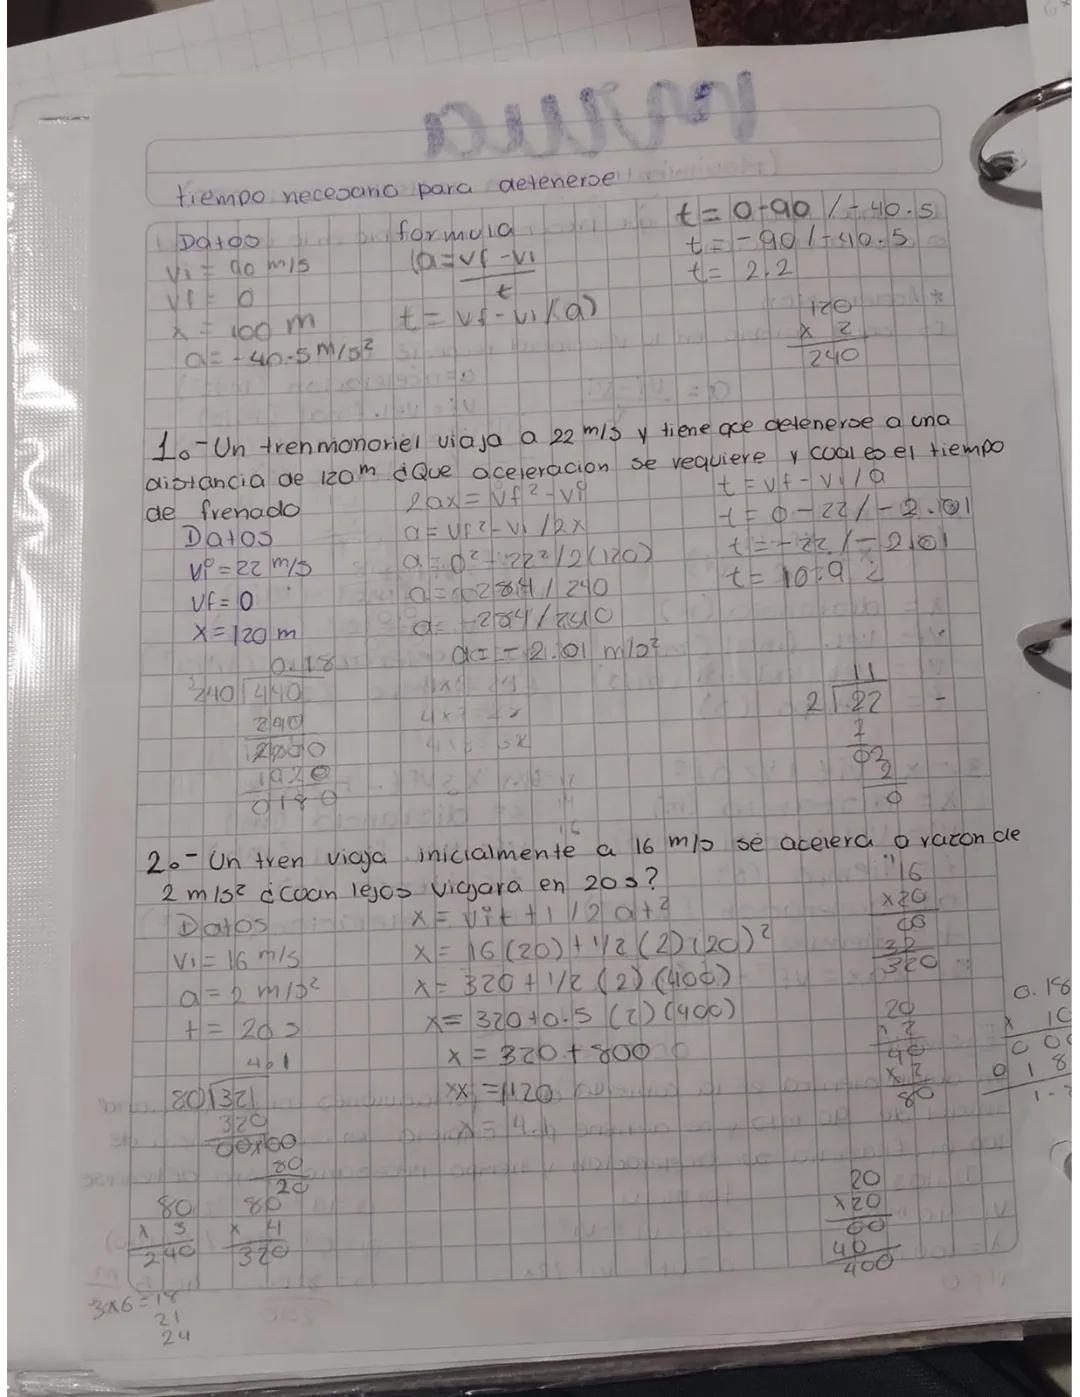 tiempo necesario para detenerse
Datos
Vi = 90 m/s
Vf = 0
x = 100 m
a = -40.5 m/s²
formula
(a = vf - vi
t
t = vf - vi / (a)
t = 0 - 90 / -40.5
t = -90 / -40.5
t = 2.2
120
x 2
240
1.- Un tren monoriel viaja a 22 m/s y tiene que detenerse a una
distancia de 120 m ¿Que aceleracion se requiere y cual es el tiempo
de frenado
Datos
Vi = 22 m/s
Vf = 0
x = 120 m
2ax = Vf² - Vi²
a = Vf² - Vi / 2x
a = 0² - 22² / 2(120)
/ 240
/ 240
a = -2.01 m/s²
t = vf - vi / a
t = 0 - 22 / -2.01
t = -22 / -2.01
t = 10.9
0.18
240 440
240
2000
1920
11
2 22
2
02
2
0
2.- Un tren viaja inicialmente a 16 m/s se acelera a razon de
2 m/s² ¿coan lejos viajara en 20 s?
Datos
Vi = 16 m/s
a = 2 m/s²
t = 20 s
x = vit + 1/2 at²
x = 16(20) + 1/2 (2)(20)²
x = 320 + 1/2 (2)(400)
x = 320 + 0.5 (2)(400)
x = 320 + 800
x = 1120
16
x20
00
32
320
20
x 2
40
x 2
80
4.1
80 321
320
80
20
80
x 3
240
80
x 4
320
20
x20
00
40
400
0.18
x 10
3x6=18
21
24